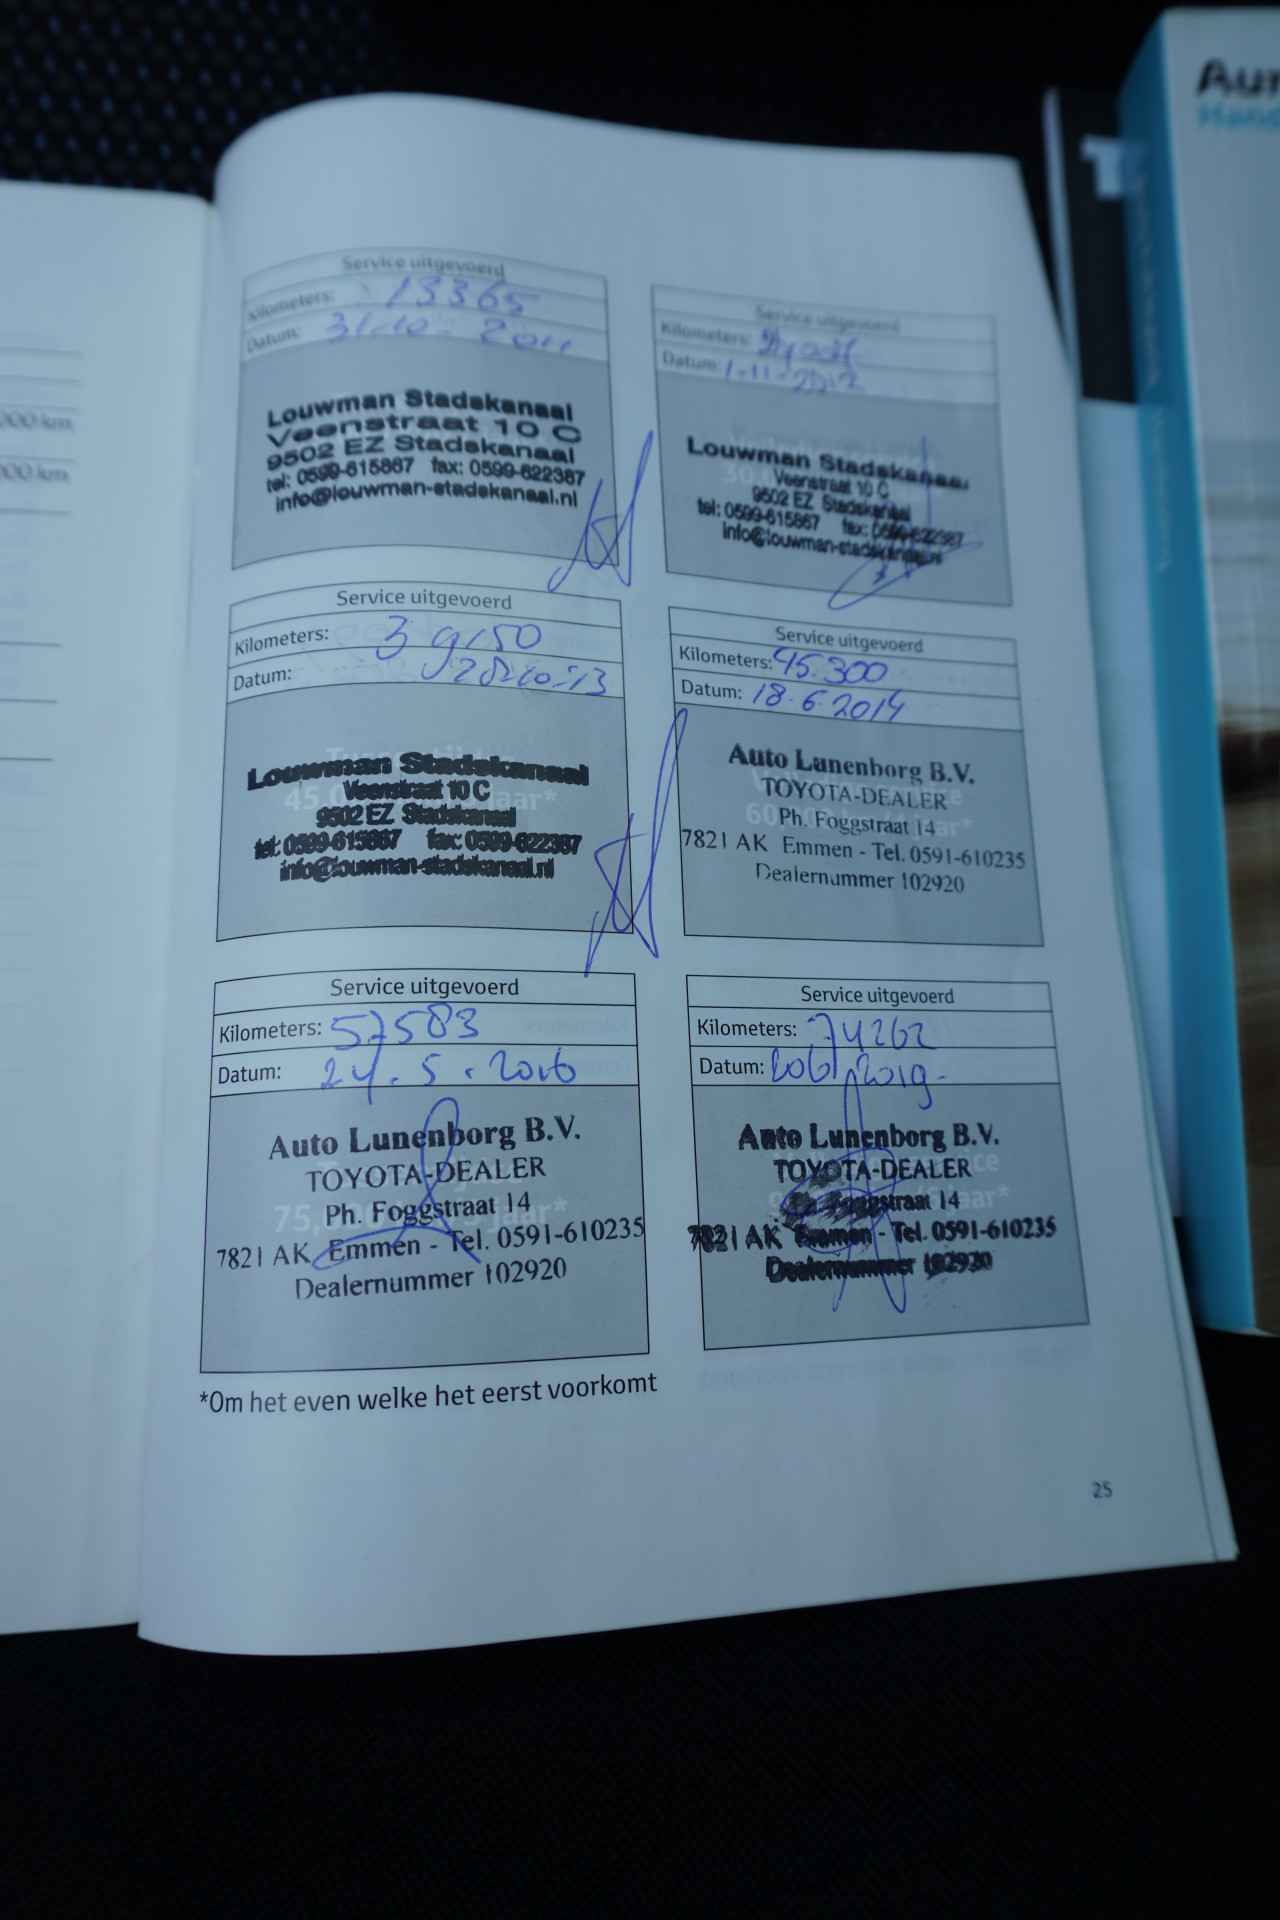 Service uitgevoerd
Kilometers: 13365
Datum: 31-10-2011
Louwman Stadskanaal
Veenstraat 10 C
9502 EZ Stadskanaal
tel: 0599-615867 fax: 0599-622387
info@louwman-stadskanaal.nl
Service uitgevoerd
Kilometers:
Datum: 1-11-2012
Louwman Stadskanaal
Veenstraat 10 C
9502 EZ Stadskanaal
tel: 0599-615867 fax: 0599-622387
info@louwman-stadskanaal.nl
Service uitgevoerd
Kilometers: 39150
Datum: 28-10-13
Louwman Stadskanaal
Veenstraat 10 C
9502 EZ Stadskanaal
tel: 0599-615867 fax: 0599-622387
info@louwman-stadskanaal.nl
Service uitgevoerd
Kilometers: 45.300
Datum: 18.6.2014
Auto Lunenborg B.V.
TOYOTA-DEALER
Ph. Foggstraat 14
7821 AK Emmen - Tel. 0591-610235
Dealernummer 102920
Service uitgevoerd
Kilometers: 57583
Datum: 24.5.2016
Auto Lunenborg B.V.
TOYOTA-DEALER
Ph. Foggstraat 14
7821 AK Emmen - Tel. 0591-610235
Dealernummer 102920
Service uitgevoerd
Kilometers: 74262
Datum: 2019
Auto Lunenborg B.V.
TOYOTA-DEALER
Ph. Foggstraat 14
7821 AK Emmen - Tel. 0591-610235
Dealernummer 102920
*Om het even welke het eerst voorkomt
25